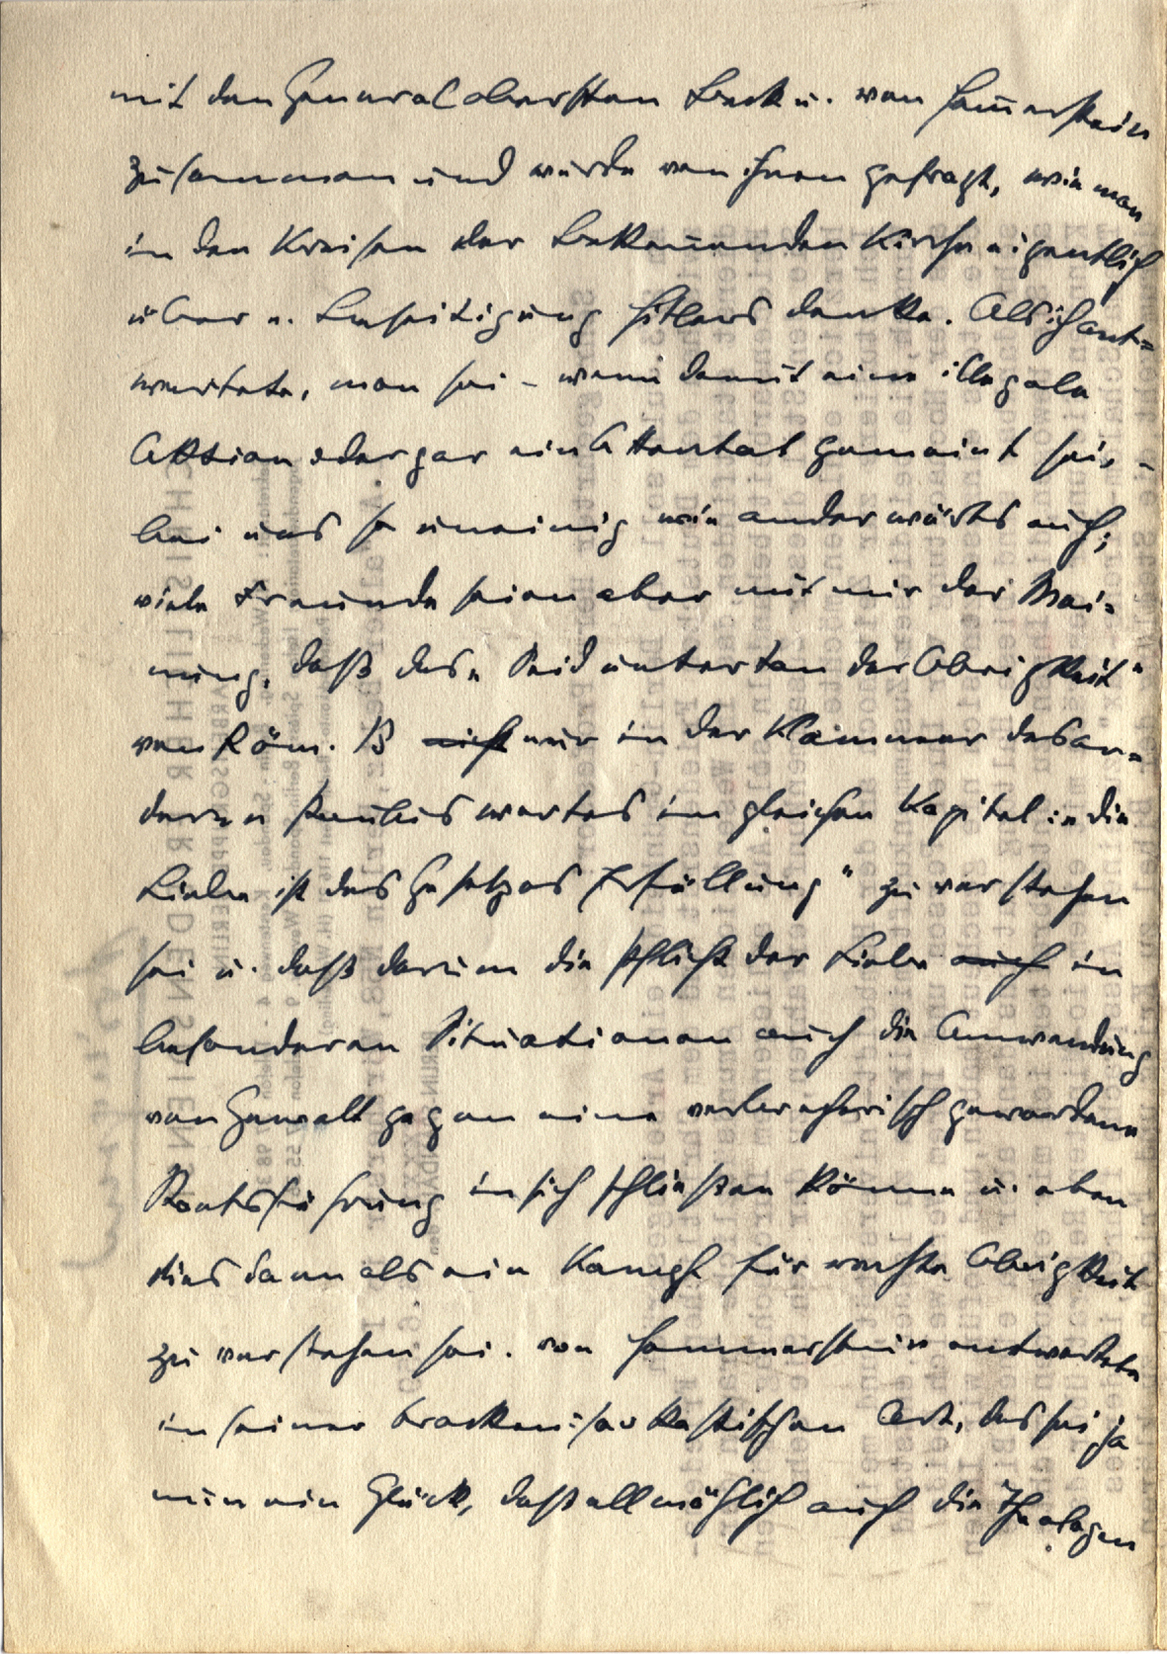 mit den Generalobersten Beck u. von Ham̅erstein
zusammen und wurde von ihnen gefragt, wie man
in den Kreisen der Beken̅enden Kirche eigentlich
über e. Beseitigung Hitlers denke. Als ich ant=
wortete, man sei – wenn damit eine illegale
Aktion oder gar ein Attentat gemeint sei, –
bei uns so uneinig wie anderwärts auch;
viele Freunde seien aber mit mir der Mei=
nung, daß das „Seid untertan der Obrigkeit"
von Röm. 13 nicht nur in der Klammer des an=
deren Pauluswortes im gleichen Kapitel: „die
Liebe ist des Gesetzes Erfüllung" zu verstehen
sei u. daß darum die Pflicht der Liebe auch in
besonderen Situationen auch die Anwendung
von Gewalt gegen eine verbrecherisch gewordene
Staatsführung in sich schließen könne u. eben
dies dann als ein Kampf für rechte Obrigkeit
zu verstehen sei. von Hammerstein antwortete
in seiner trocken-sarkastischen Art, das sei ja
nun ein Glück, daß allmählich auch die Theologen